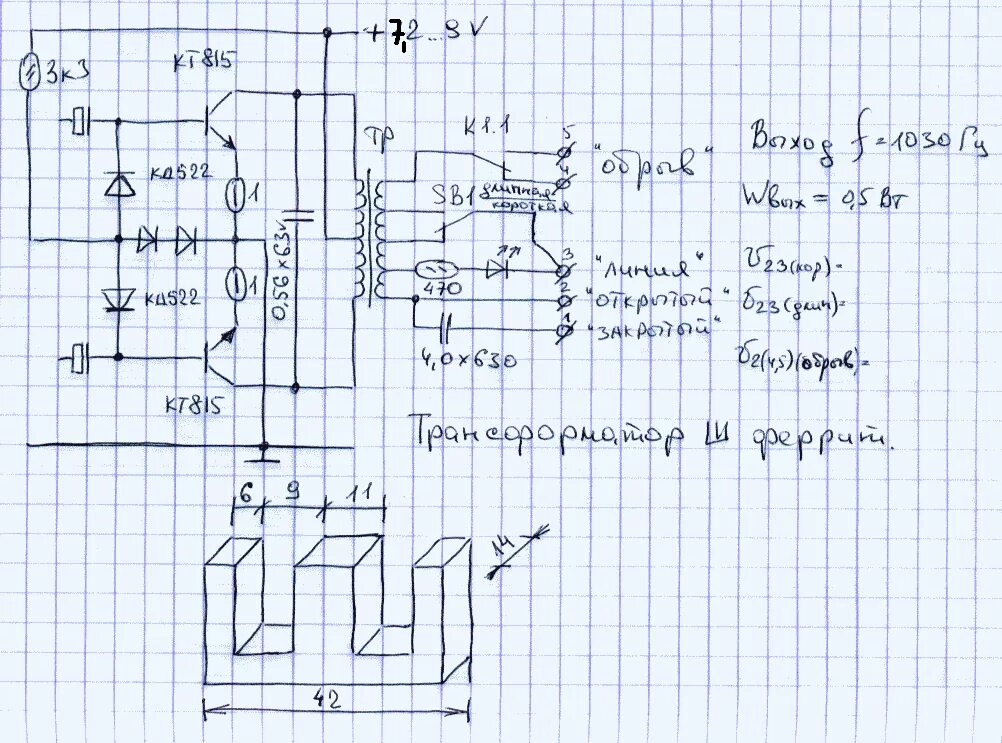 +7,2...9V
КТ815
3к3
ТР
К1.1
5
4
"обрыв"
Выход f=1030 Гц
Wвых = 0,5 Вт
КД522
1
SB1
длинная
короткая
0,56×63v
КД522
1
470
3
"линия"
2
"открытый"
1
"закрытый"
4,0×630
U23(кор)=
U23(длин)=
U2(4,5)(обрыв)=
КТ815
Трансформатор Ш феррит.
6 9 11
14
42